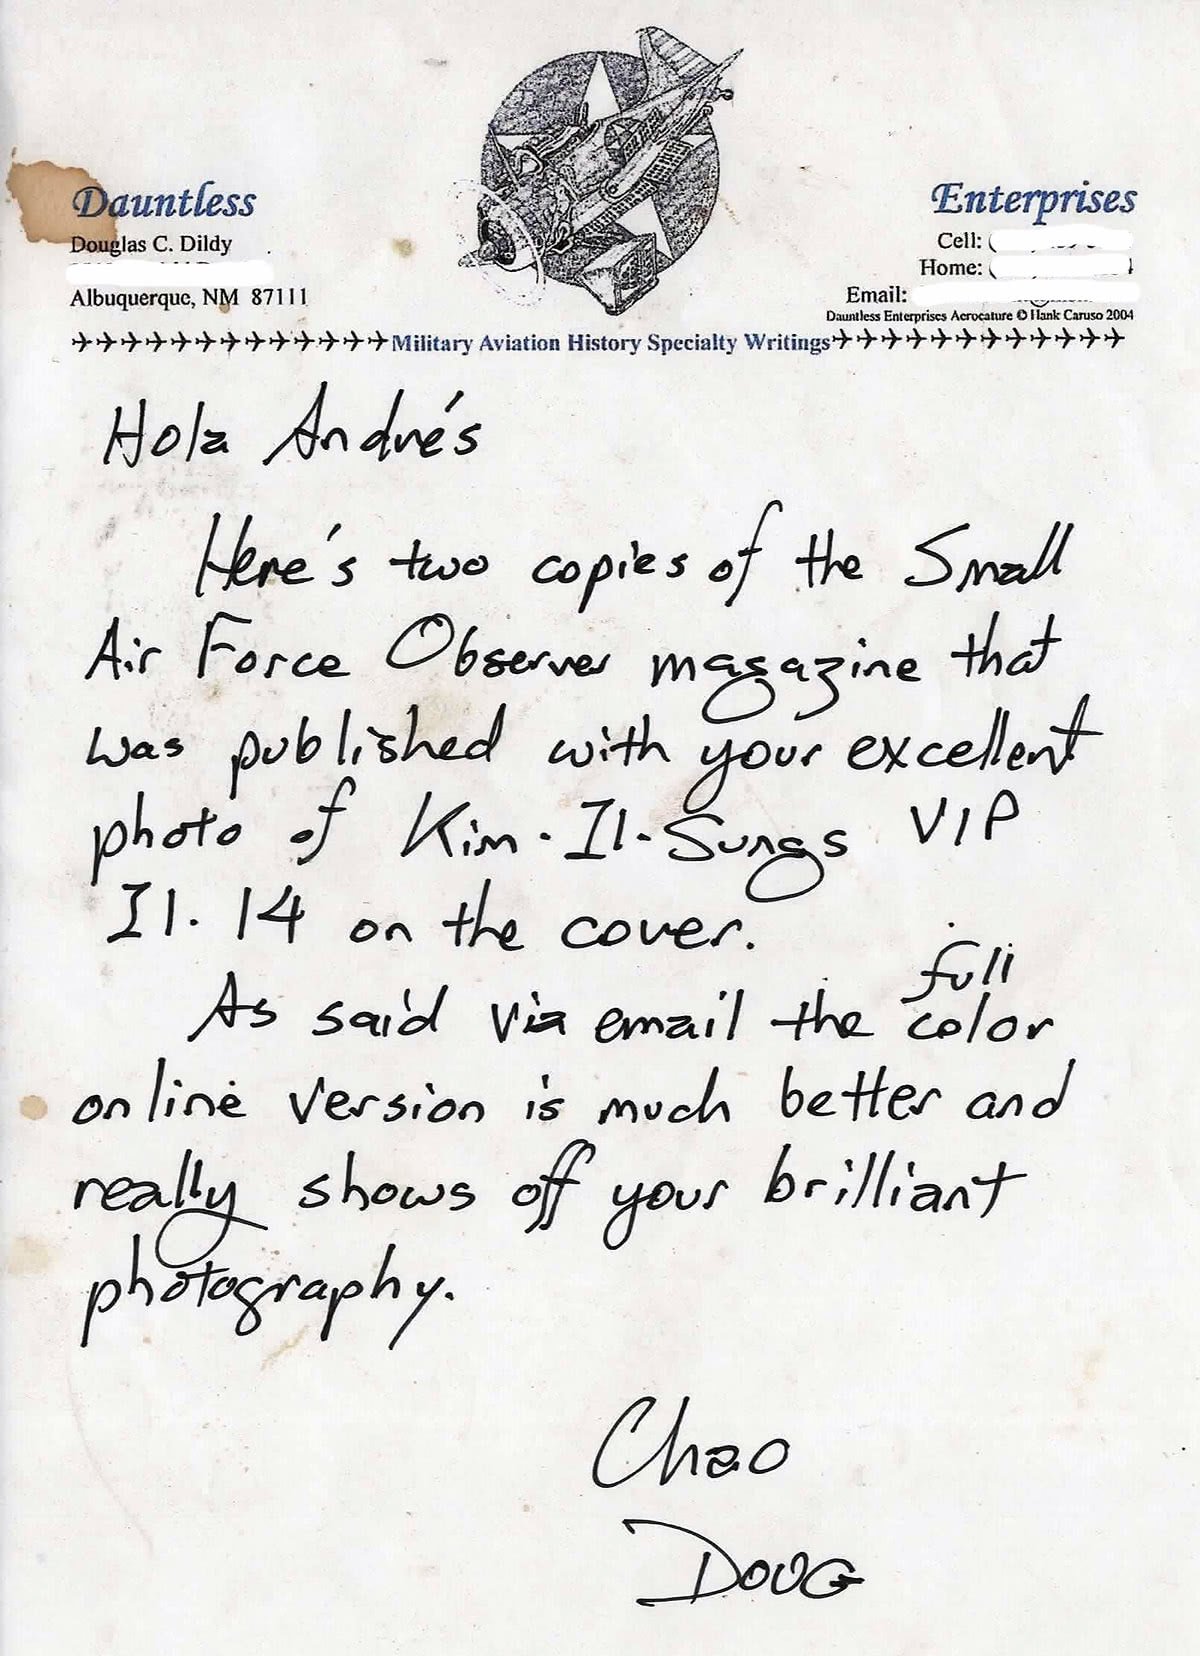 Dauntless
Enterprises
Douglas C. Dildy
Cell:
Home:
Albuquerque, NM 87111
Email:
Dauntless Enterprises Aerocature © Hank Caruso 2004
Military Aviation History Specialty Writings
Hola Andrés
Here's two copies of the Small
Air Force Observer magazine that
was published with your excellent
photo of Kim-Il-Sungs VIP
Il-14 on the cover.
As said via email the full color
online version is much better and
really shows off your brilliant
photography.
Chao
DOUG